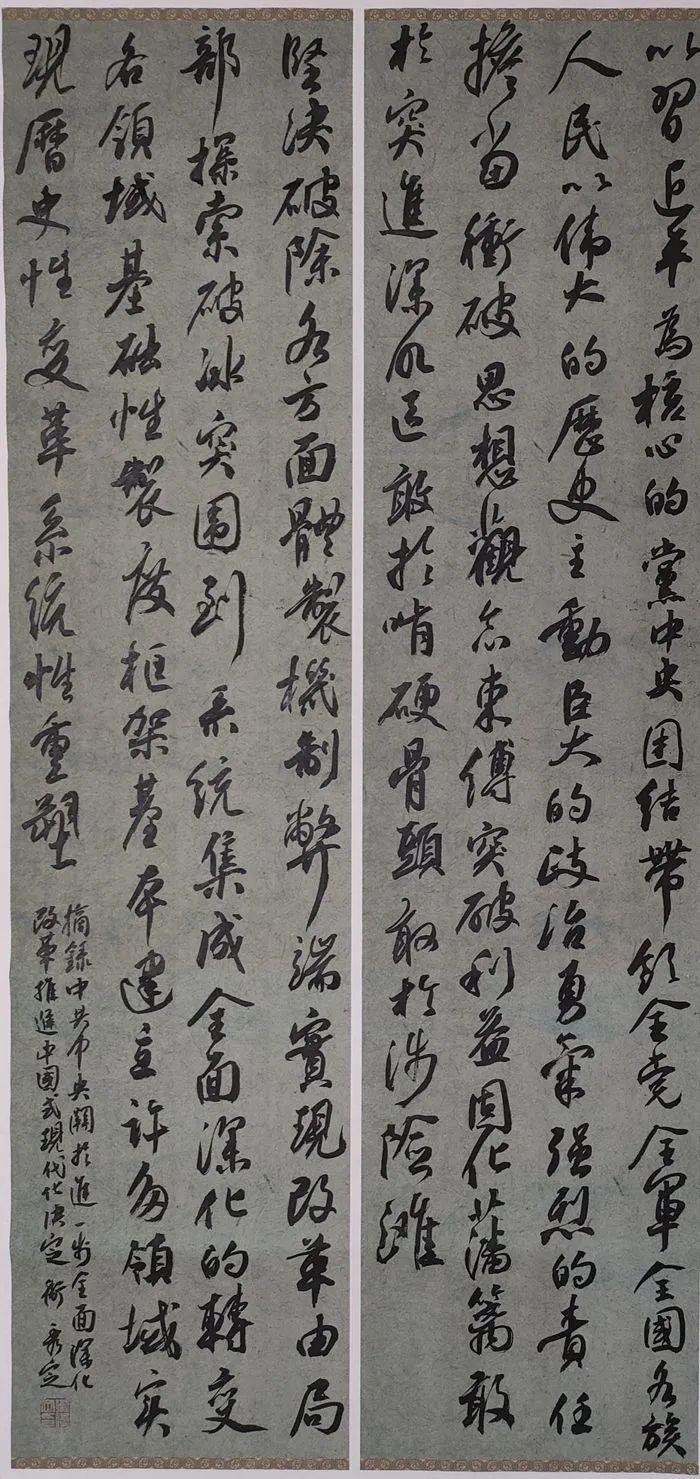 以習近平為核心的黨中央团结帶领全党全軍全國各族
人民以伟大的歷史主動巨大的政治勇氣强烈的責任
擔當衝破思想觀念束縛突破利益固化藩籬敢
於突進深水區敢於啃硬骨頭敢於涉險灘
堅決破除各方面體製機制弊端實現改革由局
部探索破冰突围到系統集成全面深化的轉变
各領域基础性製度框架基本建立許多領域实
現曆史性变革系統性重塑
摘録中共中央關於進一步全面深化
改革推進中國式現代化決定